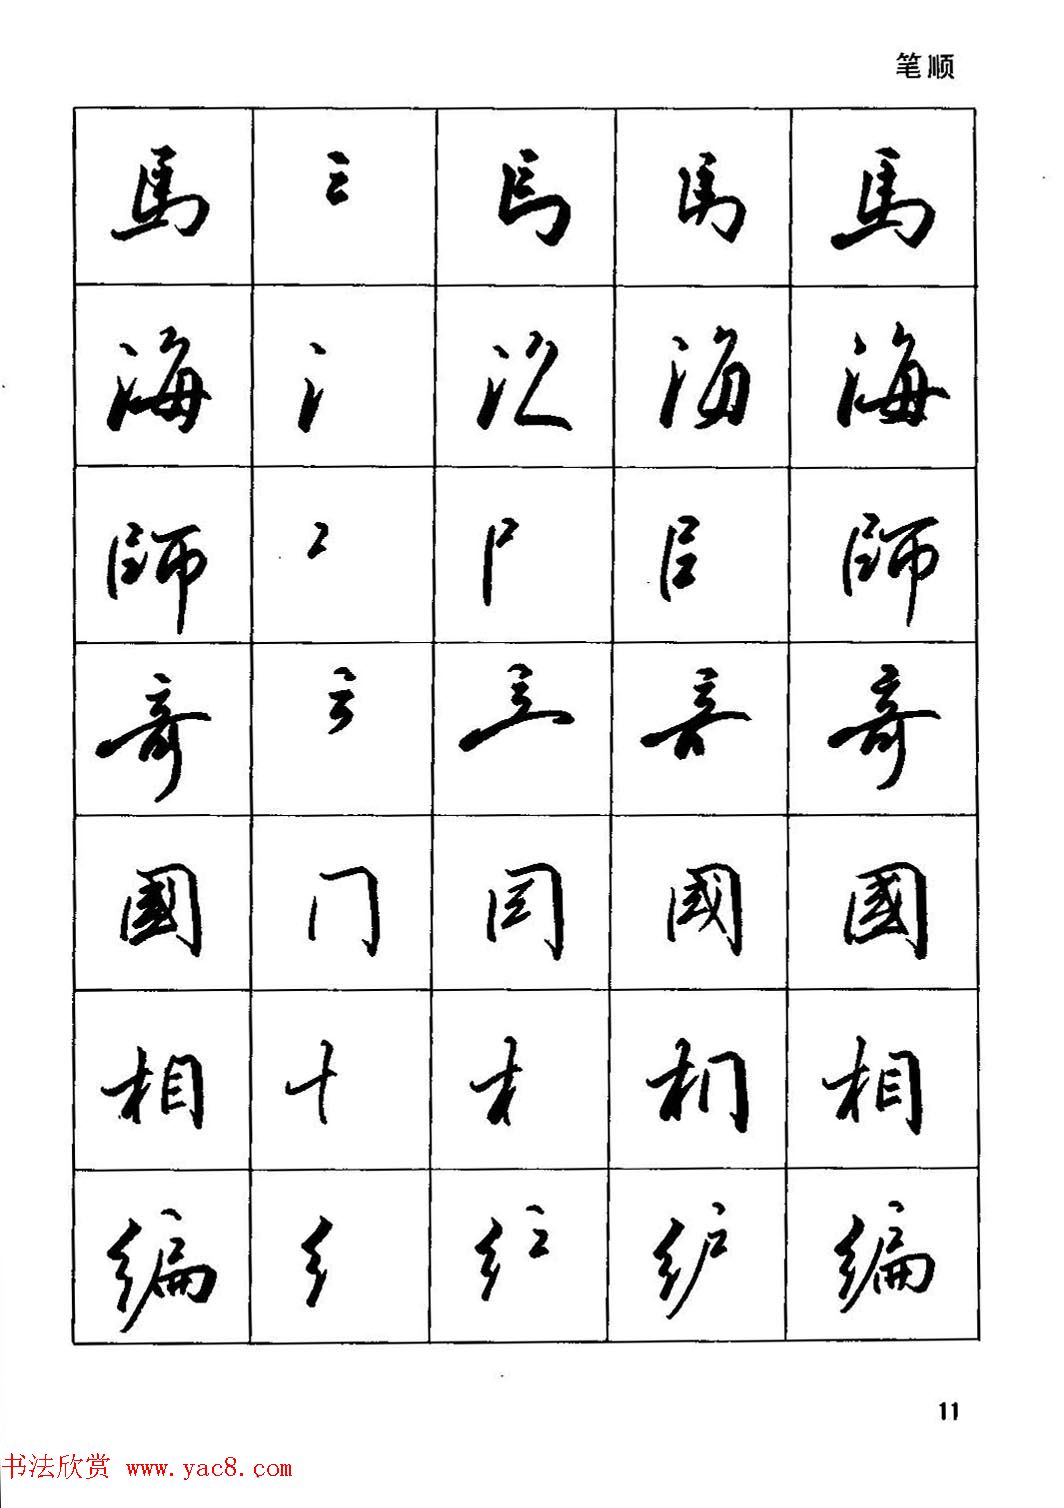 笔顺
馬 馬
海 氵 海
師 師
奇 奇
國 冂 國
相 十 相
编 编
11
书法欣赏 www.yac8.com